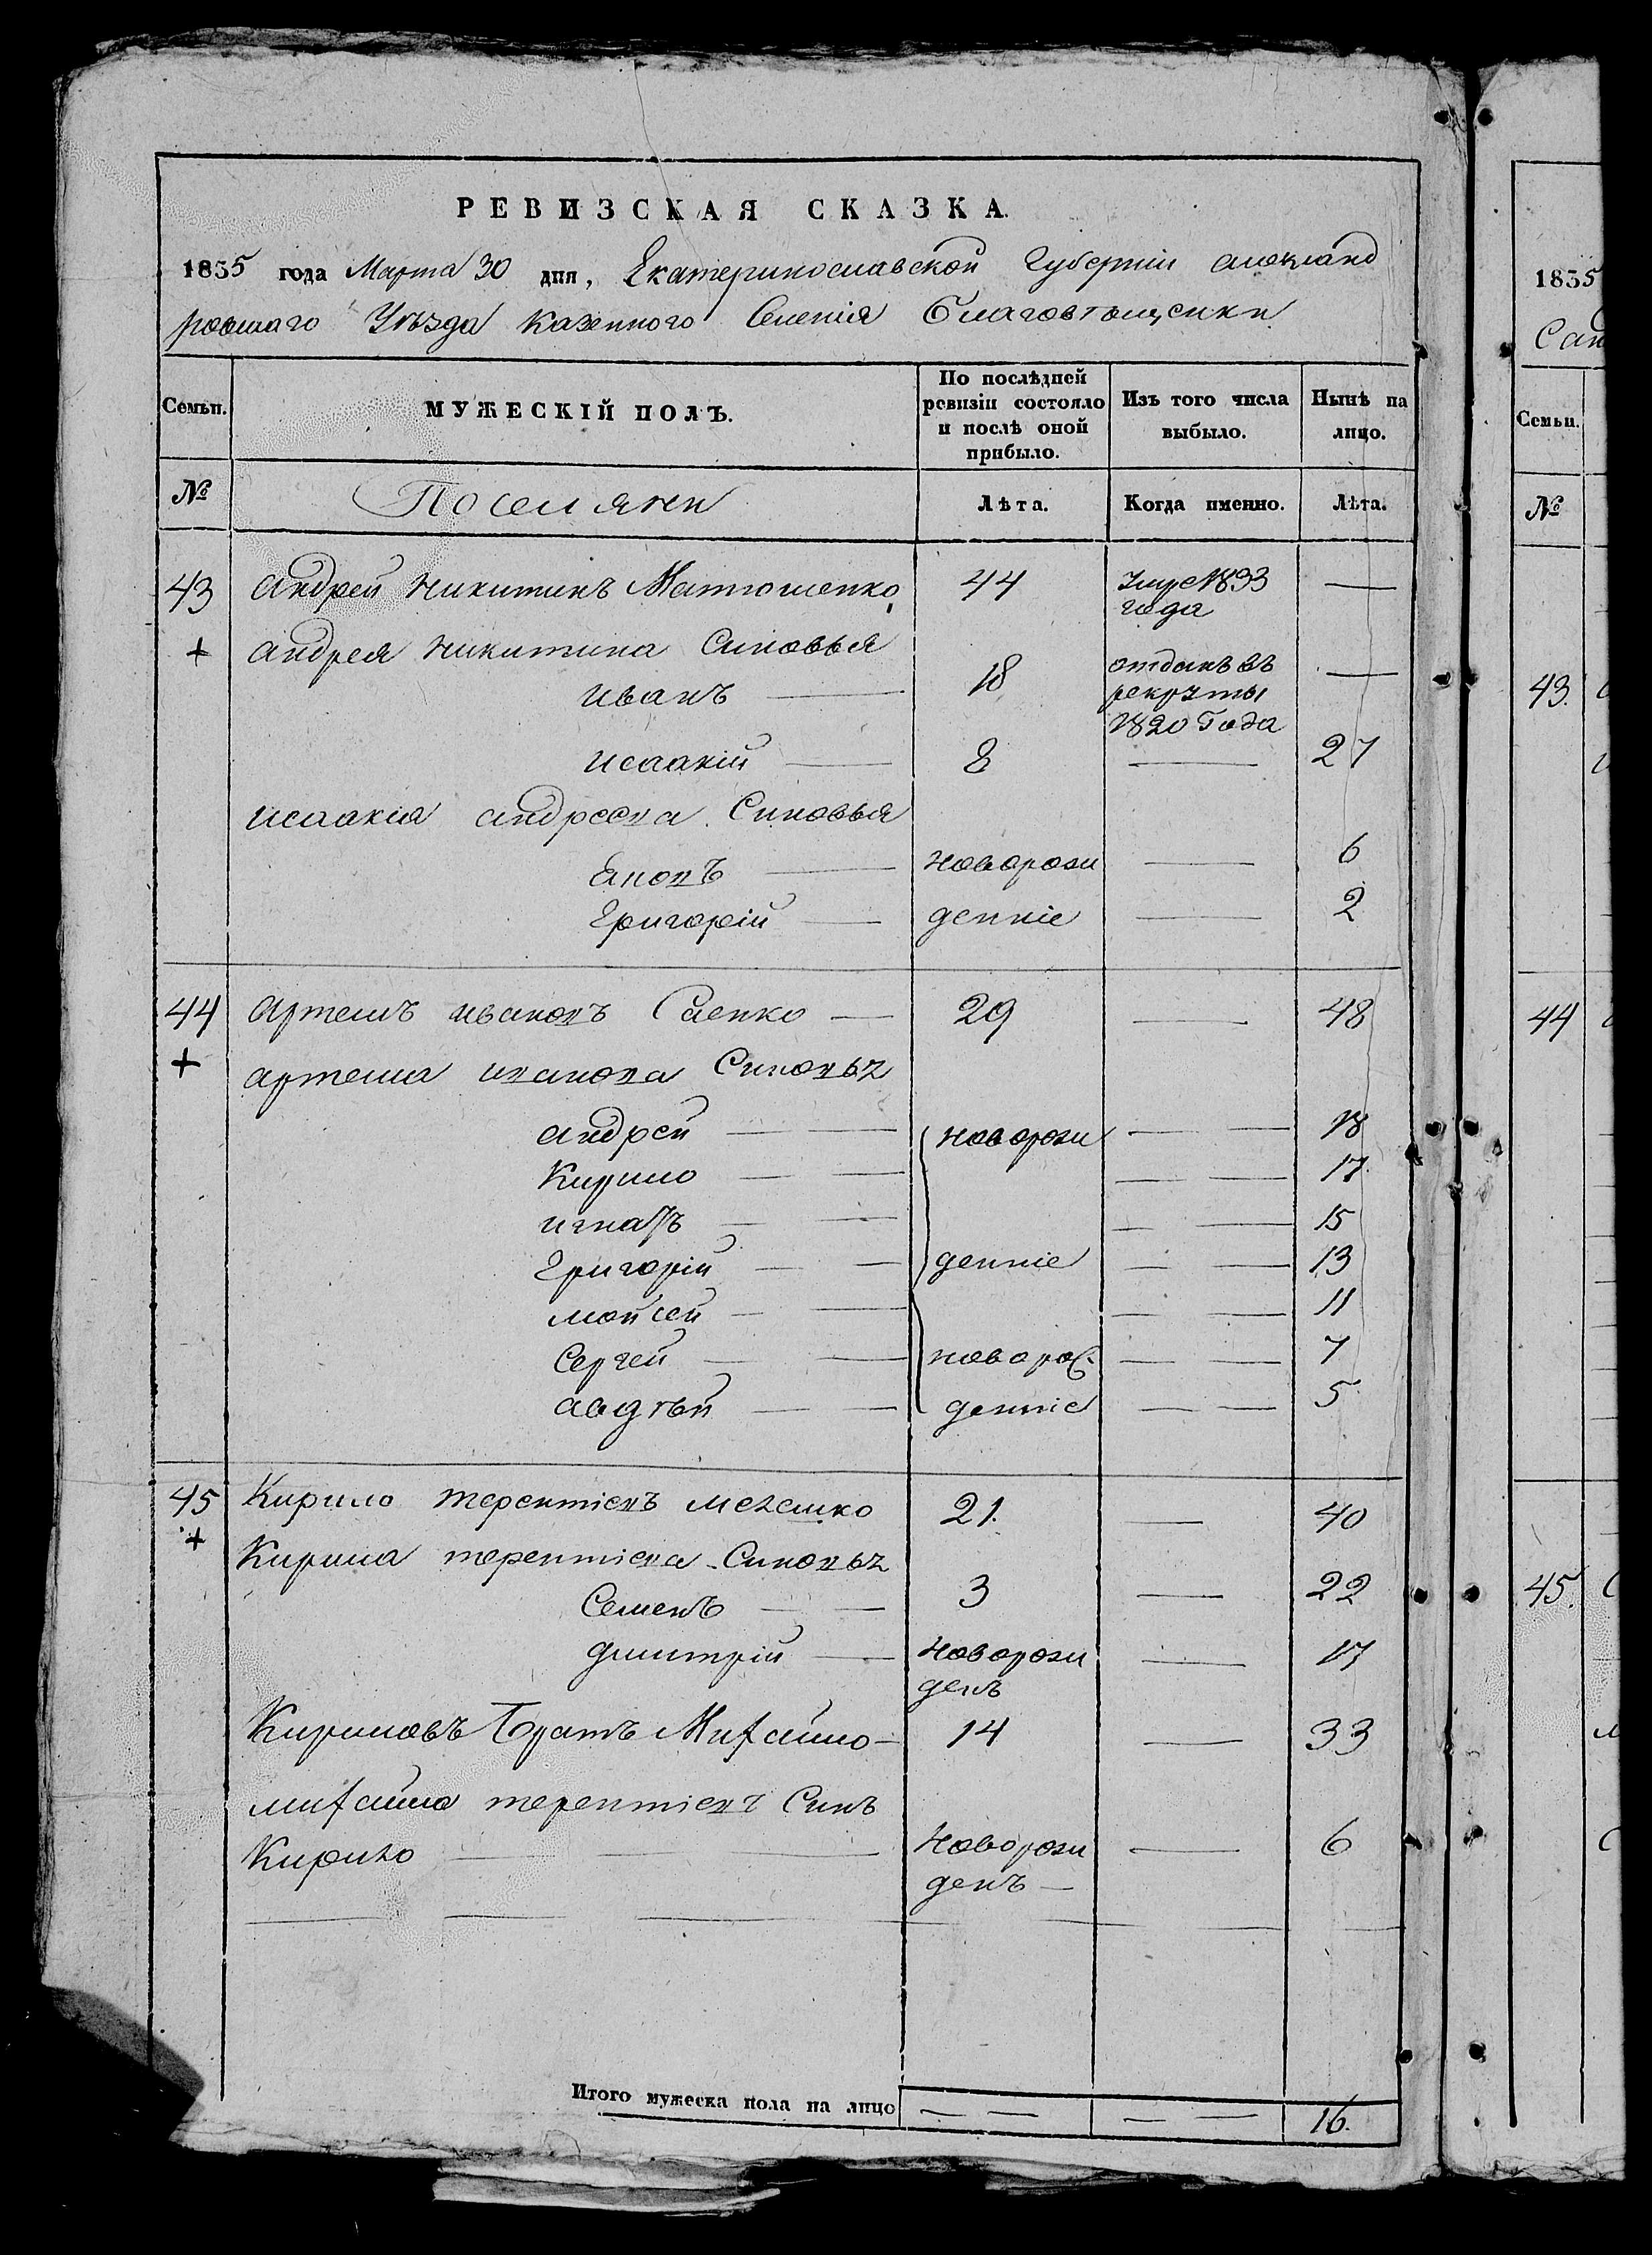 РЕВИЗСКАЯ СКАЗКА.
1835 года Марта 30 дня, Екатеринославской Губернiи александ
ровшаго Уѣзда Казенного Селенiя Благовѣщенки
Семьи.
МУЖЕСКІЙ ПОЛЪ.
По послѣдней ревизіи состояло и послѣ оной прибыло.
Изъ того числа выбыло.
Нынѣ на лицо.
№
Поселяни
Лѣта.
Когда именно.
Лѣта.
43 андрей никитинъ Матюшенко 44 умре 1833 года —
+ андрея никитина Синовья
иванъ — 18 отданъ въ рекруты 1820 Года —
исаакiй — 8 — 27
исаакiя андреева Синовья
Яковъ — новорож — 6
Григорiй — деннiе — 2
44 артемъ ивановъ Саенко — 29 — 48
+ артема иванова Синовьz
андрей — — новорож — — 18
Кирило — — — — 17
игнатъ — — — — 15
Григорiй — — деннiе — — 13
мойсей — — — — 11
Сергей — — новорож — — 7
авдѣй — — деннiе — — 5
45 Кирило терентiевъ 21. — 40
+ Кирила терентiева Синовьz
Семенъ — — 3 — 22
дмитрiй — новорож денъ — 17
Кириловъ Братъ Михайло — 14 — 33
михайла терентiева Синъ
Кирило — — — новорож денъ — — 6
Итого мужеска пола на лицо — — — — 16.
1835
Сан
Семьи.
№
43.
44
45.